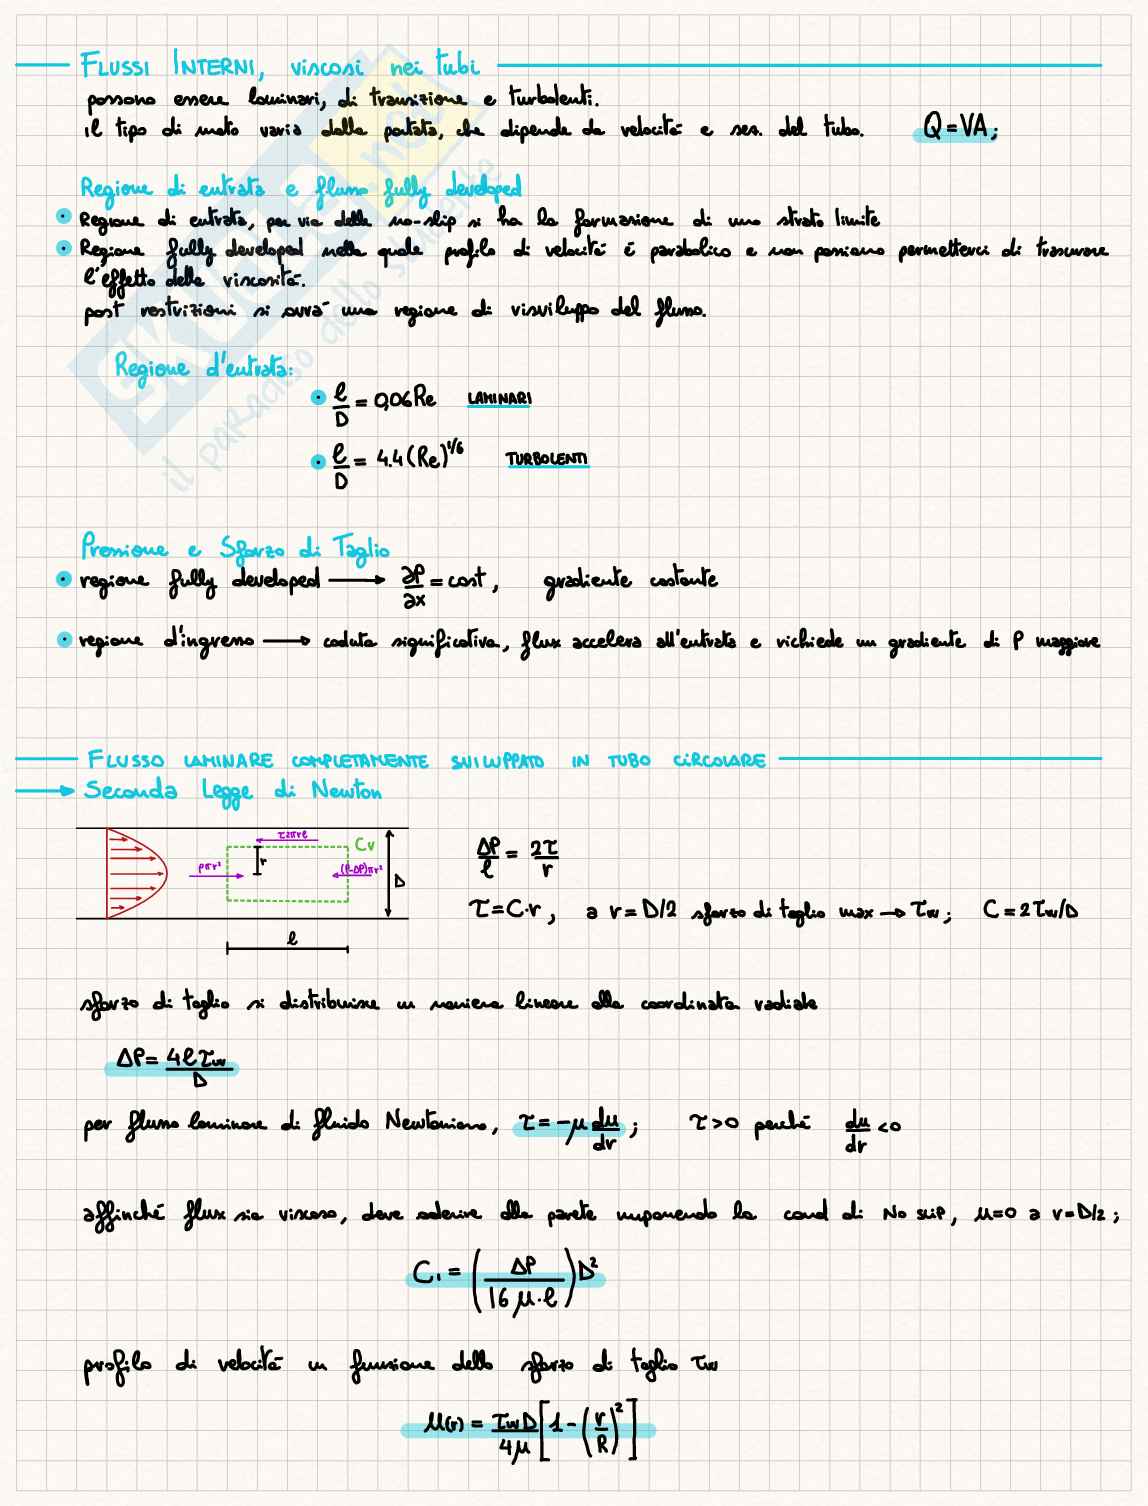 FLUSSI INTERNI, viscosi nei tubi
possono essere laminari, di transizione e turbolenti.
il tipo di moto varia dalla portata, che dipende da velocità e sez. del tubo. Q = VA ;
Regione di entrata e flusso fully developed
Regione di entrata, per via della no-slip si ha la formazione di uno strato limite
Regione fully developed nella quale profilo di velocità è parabolico e non possiamo permetterci di trascurare
l'effetto della viscosità.
post restrizioni si avrà una regione di risviluppo del flusso.
Regione d'entrata:
l/D = 0,06 Re LAMINARI
l/D = 4.4 (Re)^1/6 TURBOLENTI
Pressione e Sforzo di Taglio
regione fully developed → ∂P/∂x = cost , gradiente costante
regione d'ingresso → caduta significativa, flux accelera all'entrata e richiede un gradiente di P maggiore
FLUSSO LAMINARE COMPLETAMENTE SVILUPPATO IN TUBO CIRCOLARE
→ Seconda Legge di Newton
τ2πrl
CV
pπr² r (P-ΔP)πr² D
l
ΔP/l = 2τ/r
τ = C·r , a r = D/2 sforzo di taglio max → τw ; C = 2τw/D
sforzo di taglio si distribuisce in maniera lineare alla coordinata radiale
ΔP = 4lτw/D
per flusso laminare di fluido Newtoniano, τ = -μ du/dr ; τ > 0 perché du/dr < 0
affinché flux sia viscoso, deve aderire alla parete imponendo la cond di No slip, μ=0 a r=D/2 ;
C₁ = (ΔP/16μ·l) D²
profilo di velocità in funzione dello sforzo di taglio τw
μ(r) = τwD/4μ [1 - (r/R)²]
SKUOLA.net
il paradiso dello studente